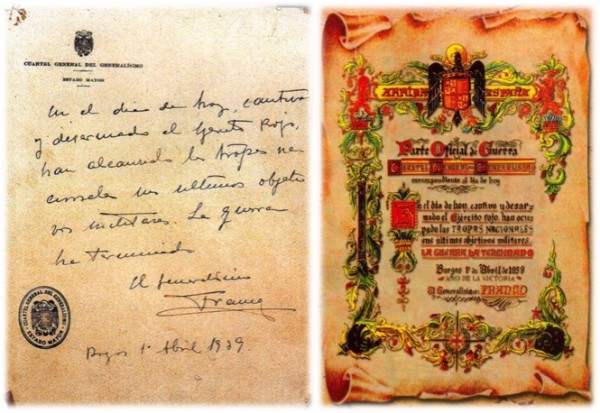 CUARTEL GENERAL DEL GENERALISIMO
ESTADO MAYOR
En el dia de hoy, cautivo
y desarmado el Ejercito Rojo,
han alcanzado las tropas na
cionales sus ultimos objeti
vos militares. La guerra
ha terminado
El Generalisimo
Franco
CUARTEL GENERAL DEL GENERALISIMO
ESTADO MAYOR
Burgos 1º Abril 1939.
ARRIBA ESPAÑA
Parte Oficial de Guerra
CUARTEL GENERAL DEL GENERALISIMO
correspondiente al día de hoy
En el día de hoy, cautivo y desar-
mado el Ejército rojo, han ocu-
pado las TROPAS NACIONALES
sus ultimos objetivos militares.
LA GUERRA HA TERMINADO
Burgos 1º de Abril de 1939
AÑO DE LA VICTORIA
El Generalísimo FRANCO